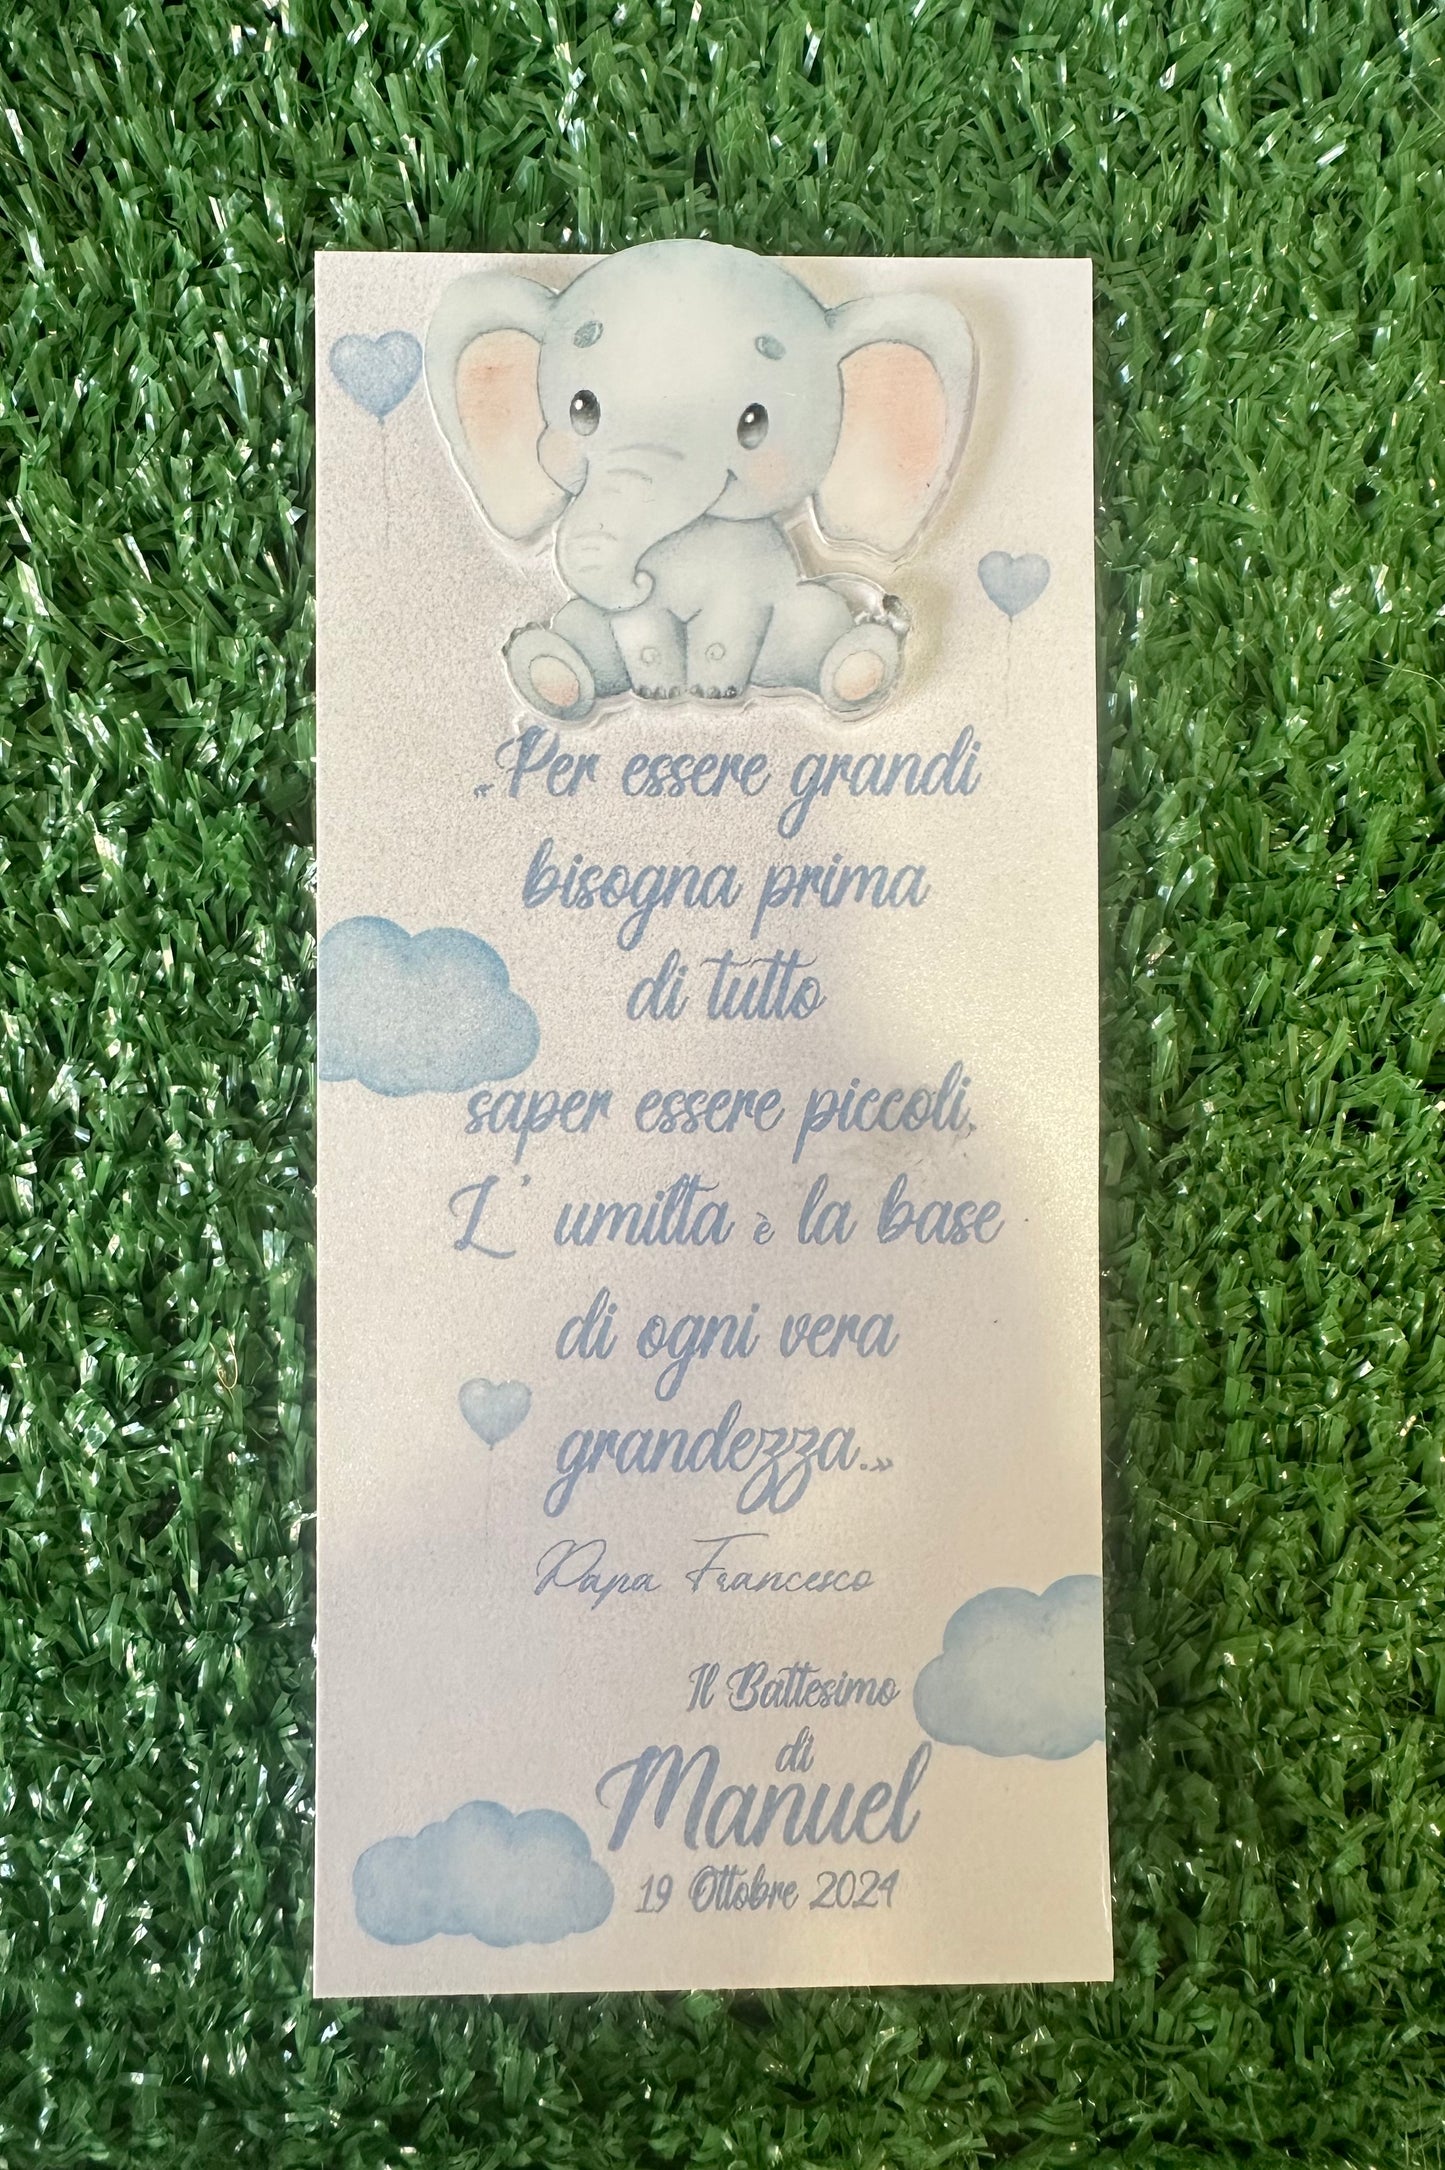 «Per essere grandi
bisogna prima
di tutto
saper essere piccoli.
L' umilta è la base
di ogni vera
grandezza.»
Papa Francesco
Il Battesimo
di
Manuel
19 Ottobre 2024